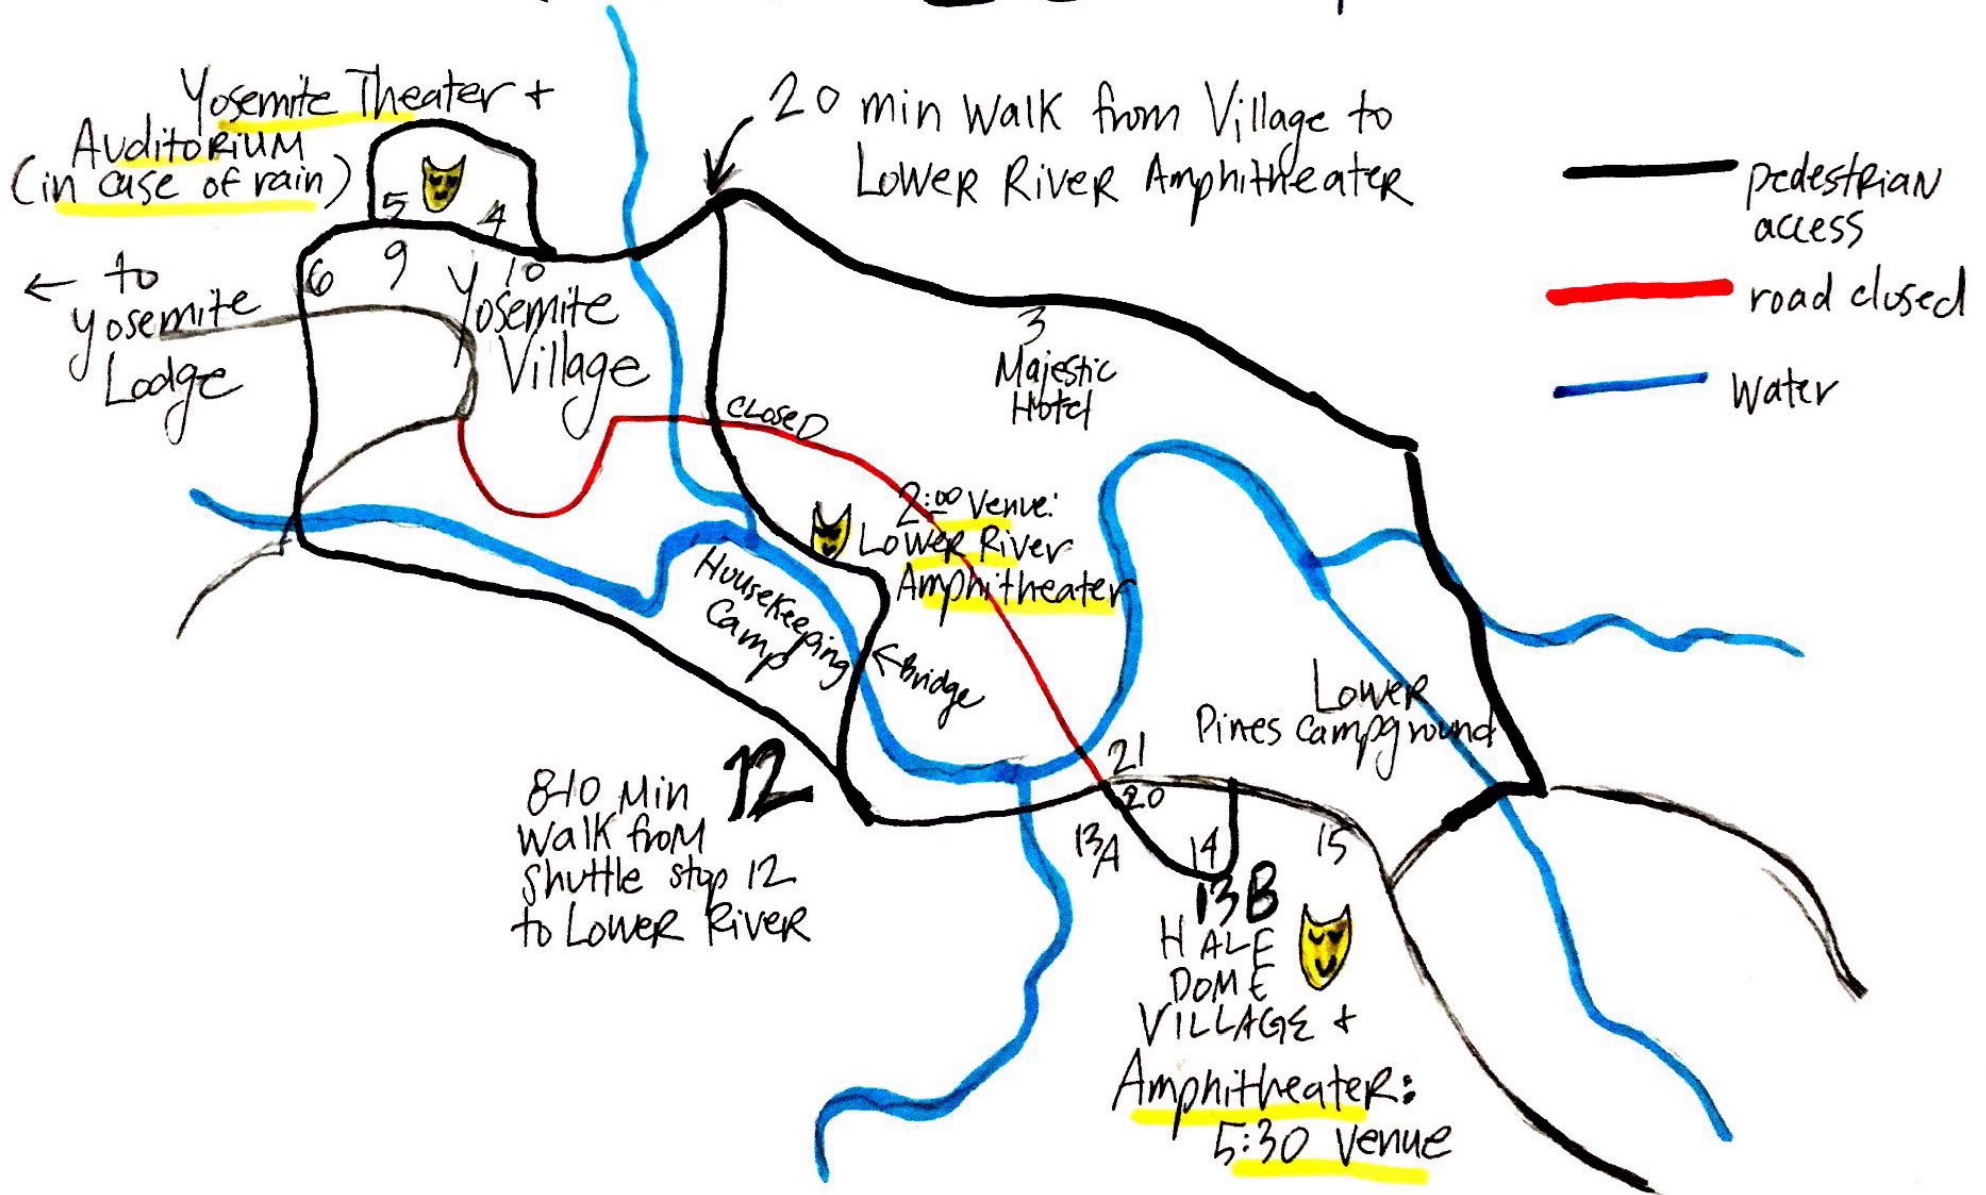 Yosemite Theater +
Auditorium
(in case of rain)
20 min walk from Village to
Lower River Amphitheater
pedestrian
access
road closed
Water
5
4
6
9
10
← to
Yosemite
Lodge
Yosemite
Village
3
Majestic
Hotel
CLOSED
2:00 Venue:
Lower River
Amphitheater
Housekeeping
Camp
← Bridge
Lower
Pines Campground
12
8-10 Min
Walk from
Shuttle stop 12
to Lower River
21
20
13A
14
15
13B
HALF
DOME
VILLAGE +
Amphitheater:
5:30 Venue